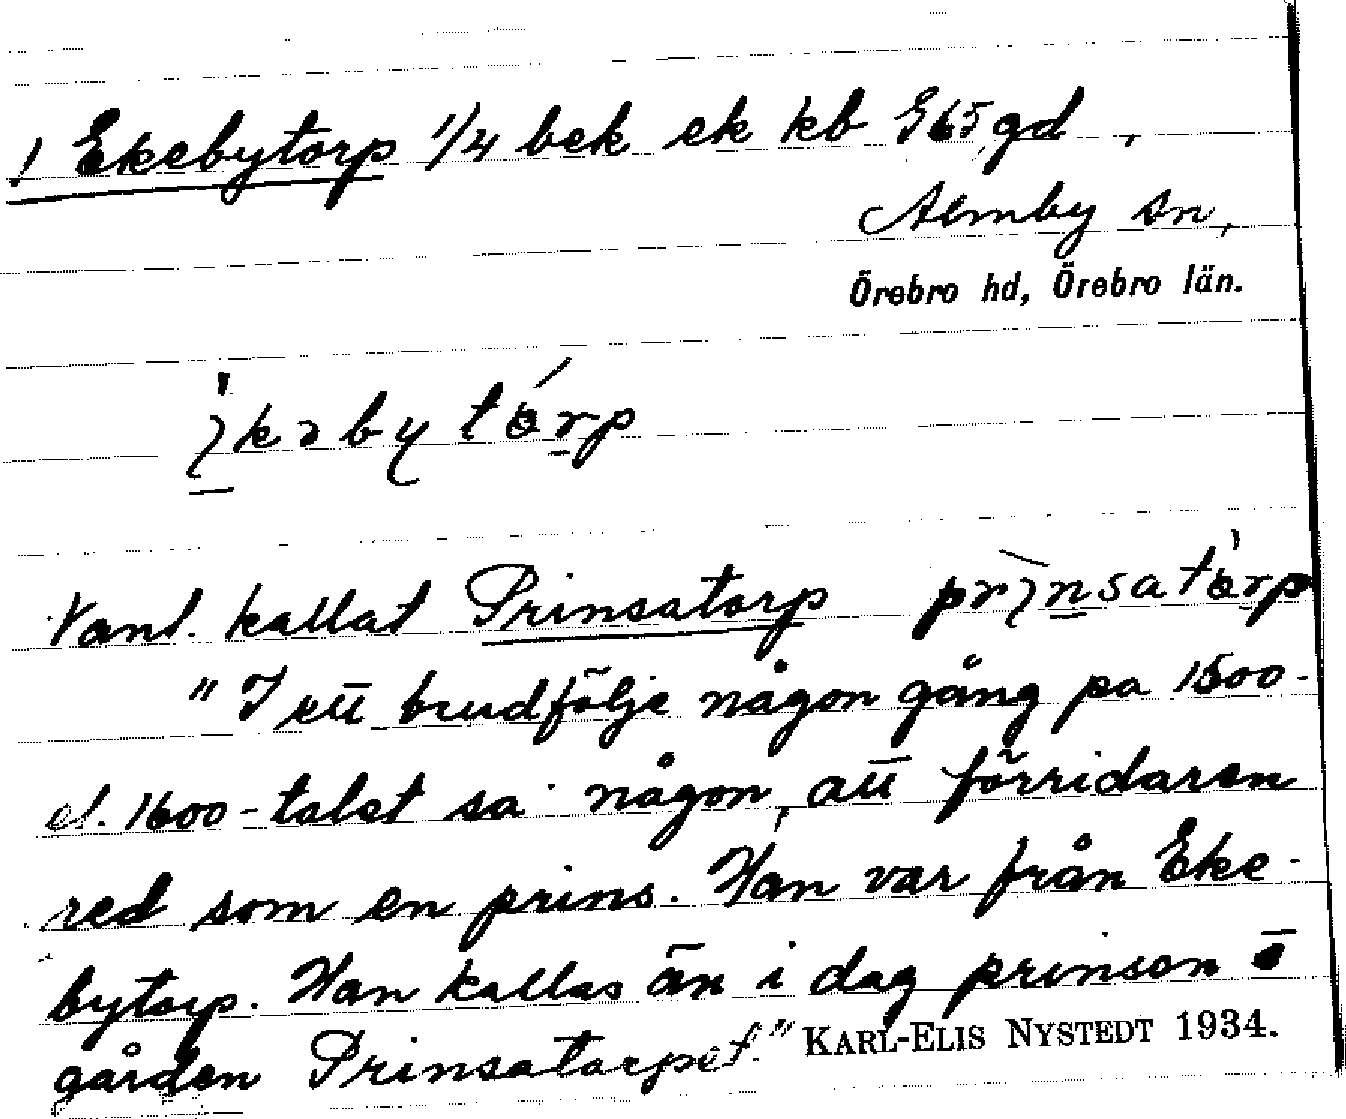 ! Ekebytorp 1/4 bek ek kb G65 gd,
Almby sn,
Örebro hd, Örebro län.
Vanl. kallat Prinsatorp
"I ett brudfölje någon gång på 1500-
el. 1600-talet sa någon, att förridaren
red som en prins. Han var från Eke-
bytorp. Han kallas än i dag prinsen o
gården Prinsatorpet." KARL-ELIS NYSTEDT 1934.